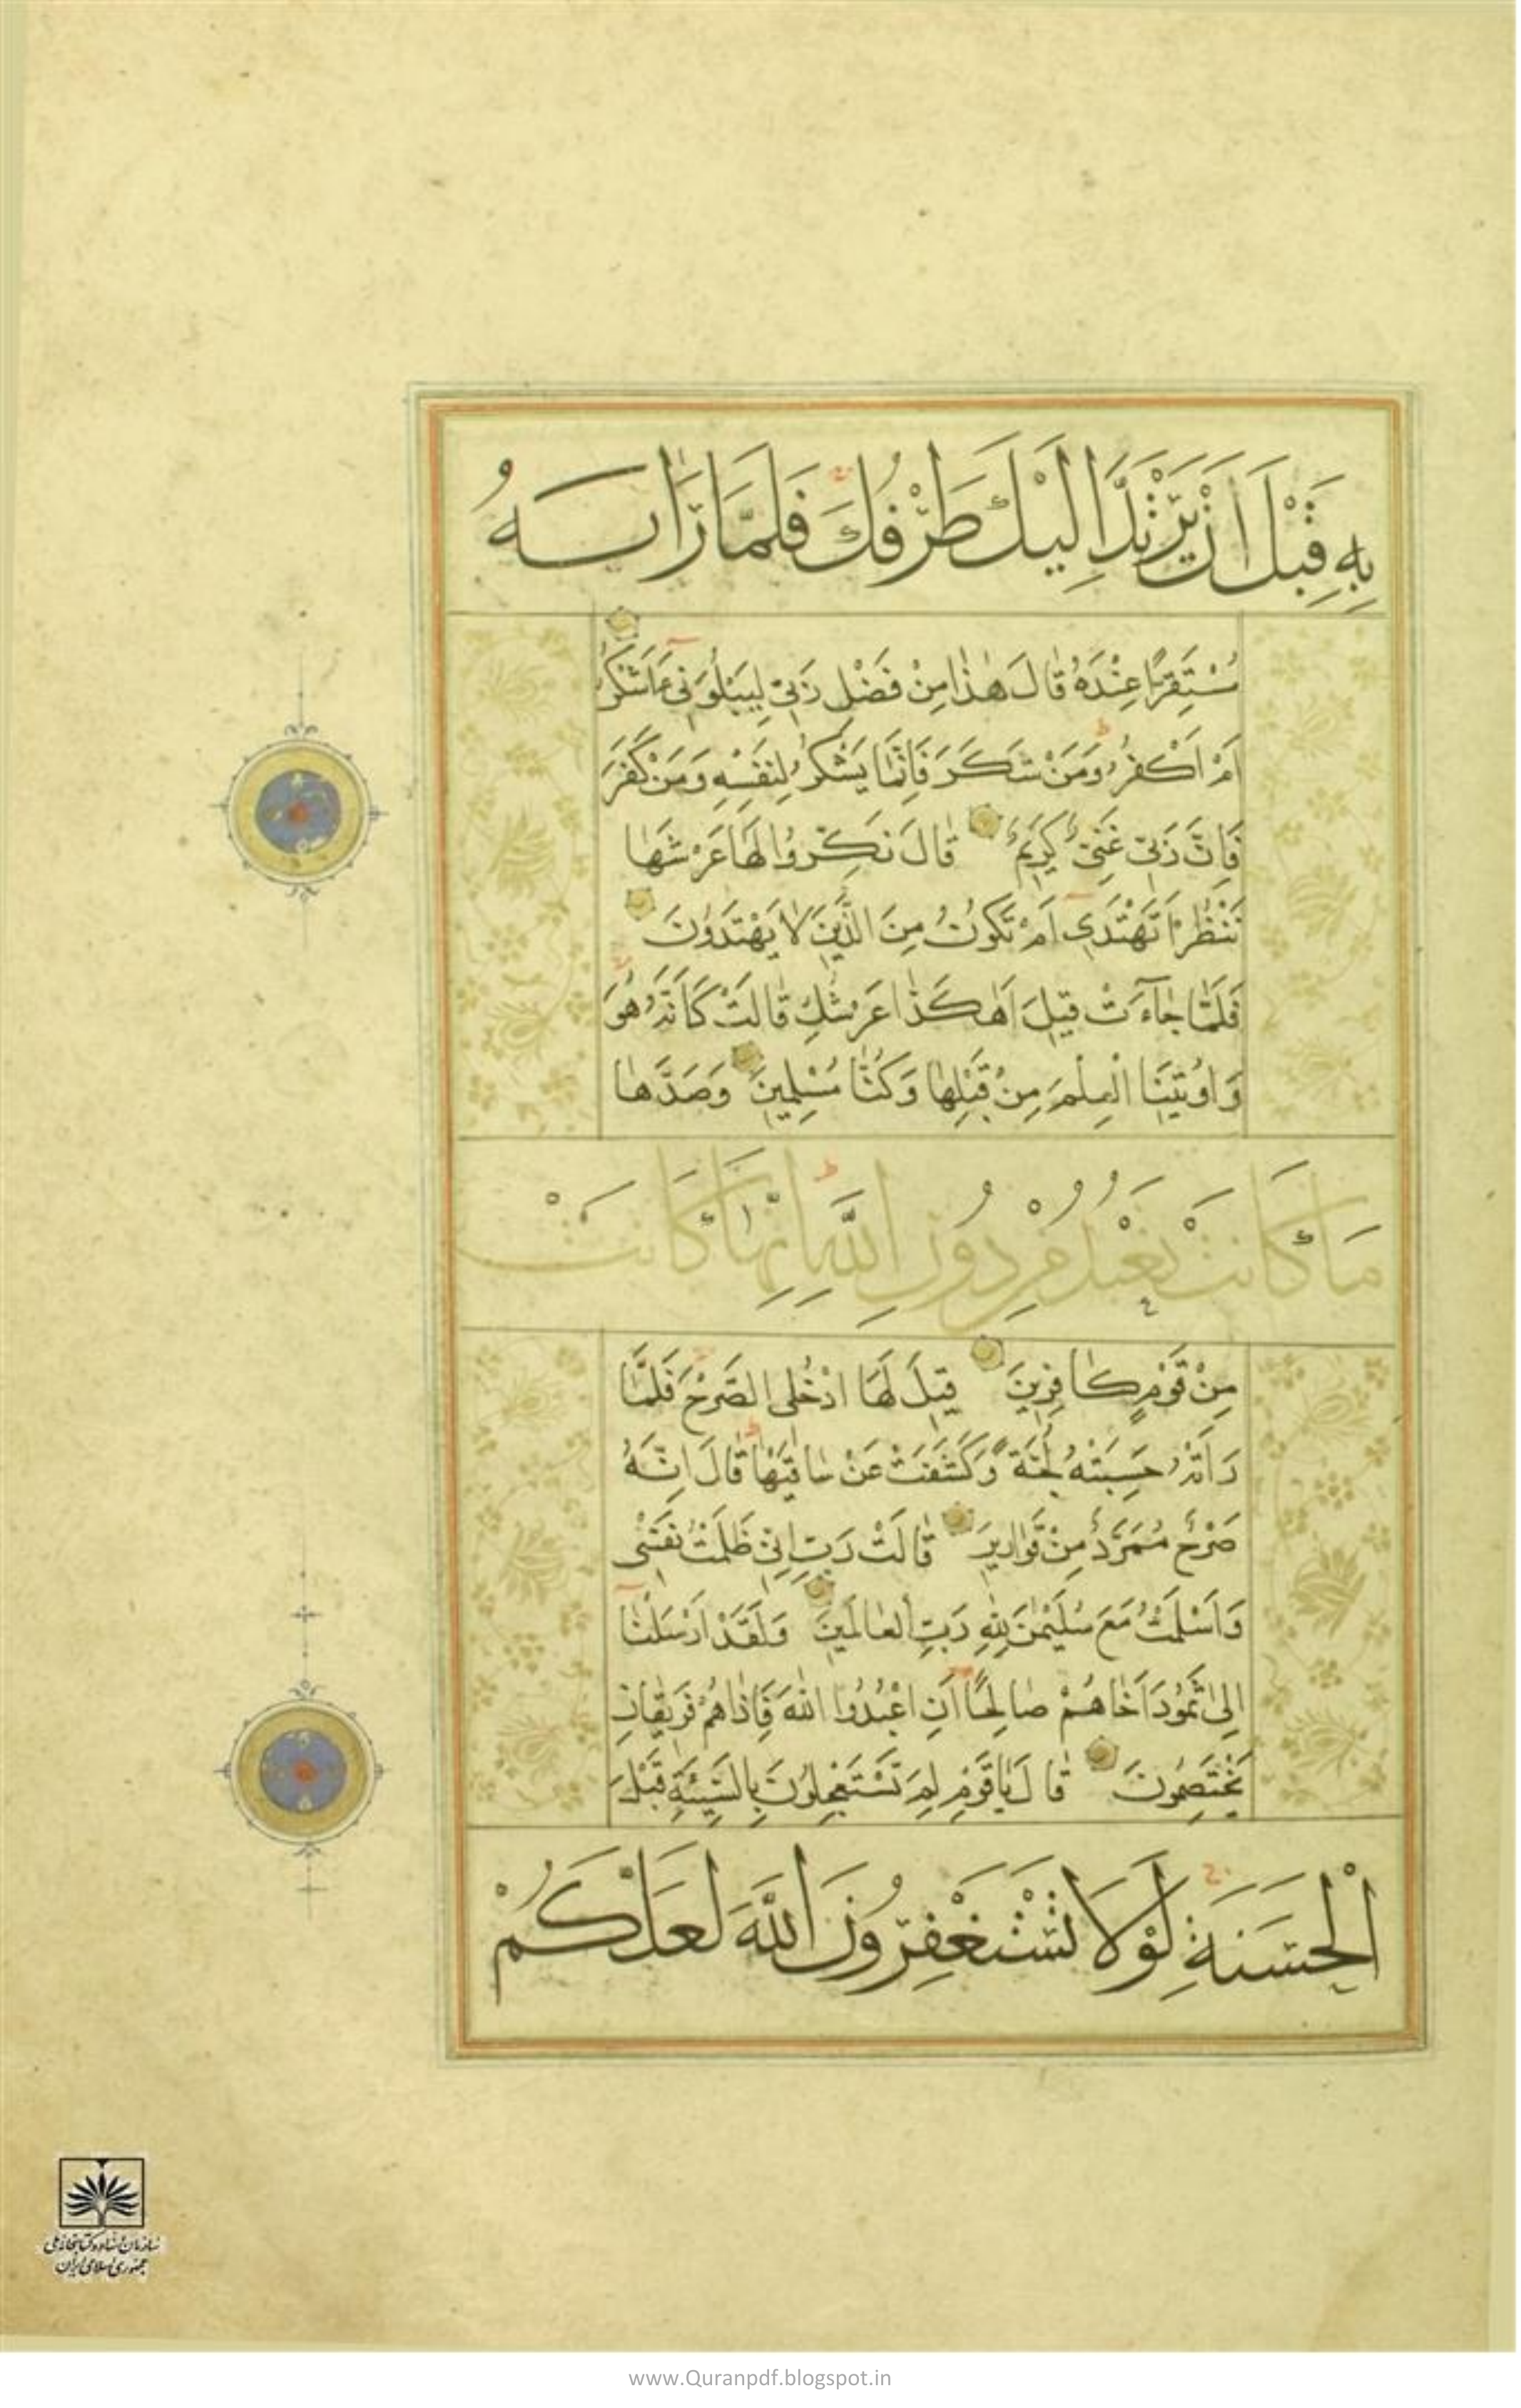 بِهِ قَبْلَ اَنْ يَرْتَدَّ اِلَيْكَ طَرْفُكَ فَلَمَّا رَاٰهُ
مُسْتَقِرًّا عِنْدَهُ قَالَ هٰذَا مِنْ فَضْلِ رَبّى لِيَبْلُوَنى ءَاَشْكُرُ
اَمْ اَكْفُرُ وَمَنْ شَكَرَ فَاِنَّمَا يَشْكُرُ لِنَفْسِهِ وَمَنْ كَفَرَ
فَاِنَّ رَبّى غَنِىٌّ كَرِيمٌ قَالَ نَكِّرُوا لَهَا عَرْشَهَا
نَنْظُرْ اَتَهْتَدى اَمْ تَكُونُ مِنَ الَّذِينَ لَا يَهْتَدُونَ
فَلَمَّا جَآءَتْ قِيلَ اَهٰكَذَا عَرْشُكِ قَالَتْ كَاَنَّهُ هُوَ
وَاُوتِينَا الْعِلْمَ مِنْ قَبْلِهَا وَكُنَّا مُسْلِمِينَ وَصَدَّهَا
مَا كَانَتْ تَعْبُدُ مِنْ دُونِ اللّٰهِ اِنَّهَا كَانَتْ
مِنْ قَوْمٍ كَافِرِينَ قِيلَ لَهَا ادْخُلِى الصَّرْحَ فَلَمَّا
رَاَتْهُ حَسِبَتْهُ لُجَّةً وَكَشَفَتْ عَنْ سَاقَيْهَا قَالَ اِنَّهُ
صَرْحٌ مُمَرَّدٌ مِنْ قَوَارِيرَ قَالَتْ رَبِّ اِنّى ظَلَمْتُ نَفْسى
وَاَسْلَمْتُ مَعَ سُلَيْمٰنَ لِلّٰهِ رَبِّ الْعَالَمِينَ وَلَقَدْ اَرْسَلْنَا
اِلٰى ثَمُودَ اَخَاهُمْ صَالِحًا اَنِ اعْبُدُوا اللّٰهَ فَاِذَا هُمْ فَرِيقَانِ
يَخْتَصِمُونَ قَالَ يَا قَوْمِ لِمَ تَسْتَعْجِلُونَ بِالسَّيِّئَةِ قَبْلَ
الْحَسَنَةِ لَوْلَا تَسْتَغْفِرُونَ اللّٰهَ لَعَلَّكُمْ
سازمان اسناد و کتابخانه ملی
جمهوری اسلامی ایران
www.Quranpdf.blogspot.in